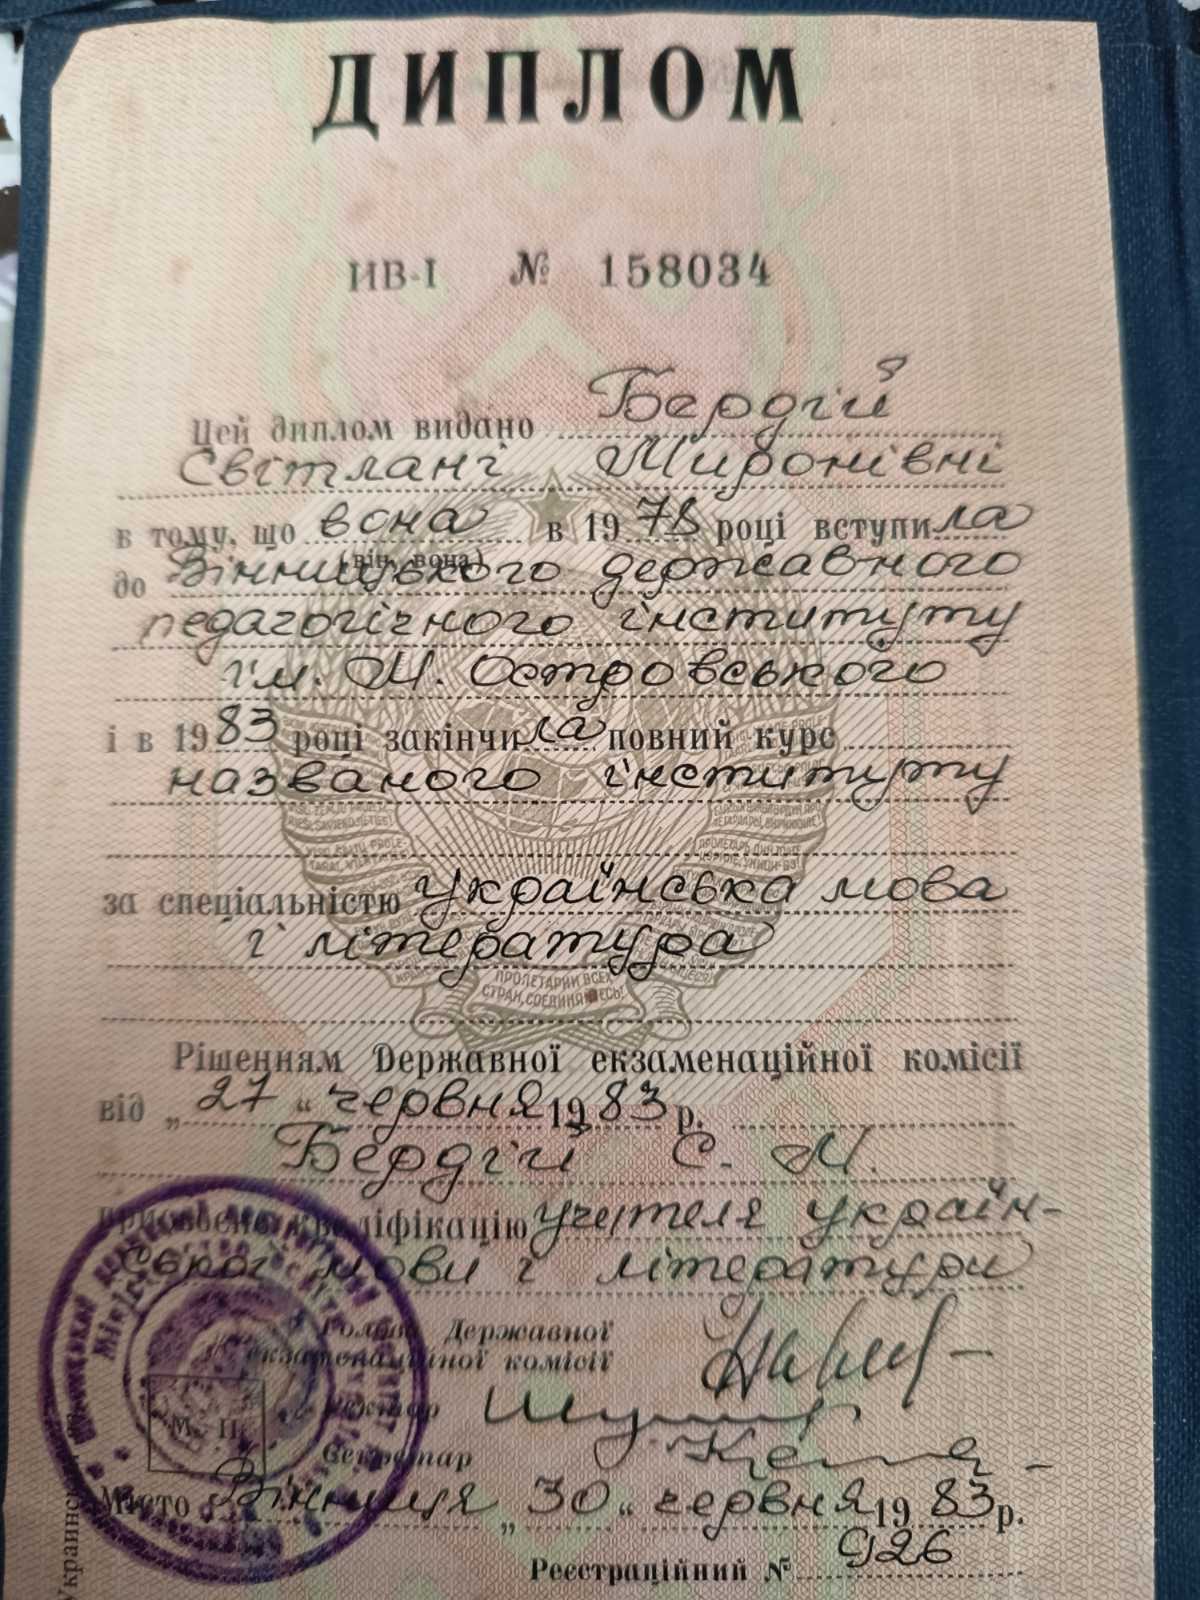 ДИПЛОМ
ИВ-І № 158034
Цей диплом видано Бердгій
Світлані Миронівні
в тому, що вона в 1978 році вступила
(він, вона)
до Вінницького державного
педагогічного інституту
ім. М. Островського
і в 1983 році закінчила повний курс
названого інституту
за спеціальністю українська мова
і література
ПРОЛЕТАРИИ ВСЕХ
СТРАН, СОЕДИНЯЙТЕСЬ!
Рішенням Державної екзаменаційної комісії
від „27“ червня 1983 р.
Бердгій С. М.
присвоєно кваліфікацію учителя україн-
ської мови і літератури
Голова Державної
екзаменаційної комісії
Ректор
Секретар
М. П.
Місто Вінниця „30“ червня 1983 р.
Реєстраційний № 926